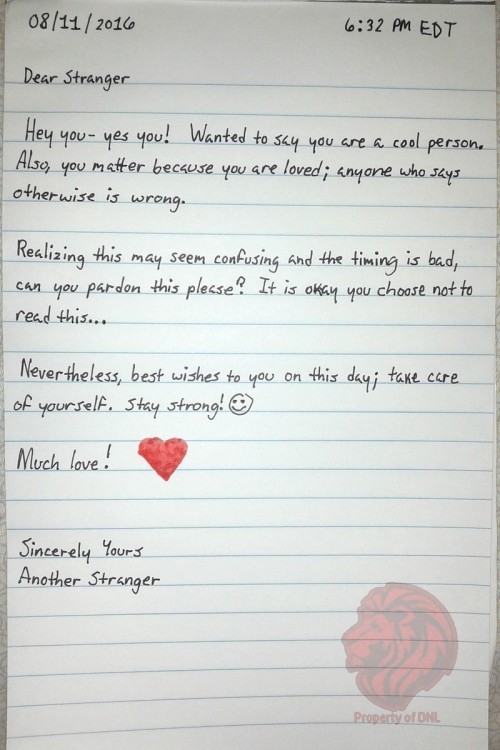 08/11/2016 6:32 PM EDT
Dear Stranger
Hey you- yes you! Wanted to say you are a cool person.
Also, you matter because you are loved; anyone who says
otherwise is wrong.
Realizing this may seem confusing and the timing is bad,
can you pardon this please? It is okay you choose not to
read this...
Nevertheless, best wishes to you on this day; take care
of yourself. Stay strong! ☺
Much love! ❤
Sincerely Yours
Another Stranger
Property of DNL